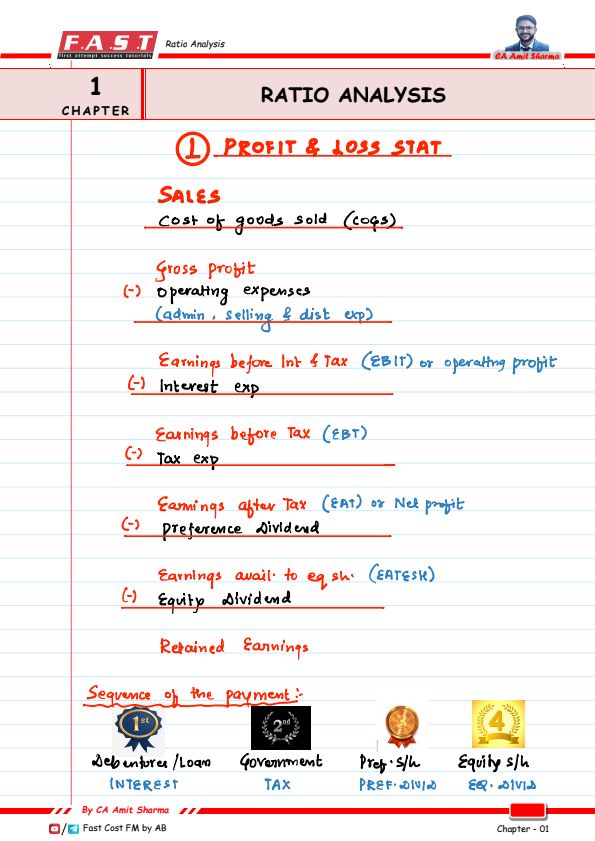 F.A.S.T
first attempt success tutorials
Ratio Analysis
CA Amit Sharma
1
CHAPTER
RATIO ANALYSIS
1 PROFIT & LOSS STAT
SALES
Cost of goods sold (COGS)
Gross profit
(-) Operating expenses
(admin, selling & dist exp)
Earnings before Int & Tax (EBIT) or operating profit
(-) Interest exp
Earnings before Tax (EBT)
(-) Tax exp
Earnings after Tax (EAT) or Net profit
(-) Preference Dividend
Earnings avail. to eq sh. (EATESH)
(-) Equity Dividend
Retained Earnings
Sequence of the payment:-
1st 2nd 4
Debentures/Loan Government Pref. S/h Equity S/h
INTEREST TAX PREF. DIVID EQ. DIVID
By CA Amit Sharma
/ Fast Cost FM by AB
Chapter - 01